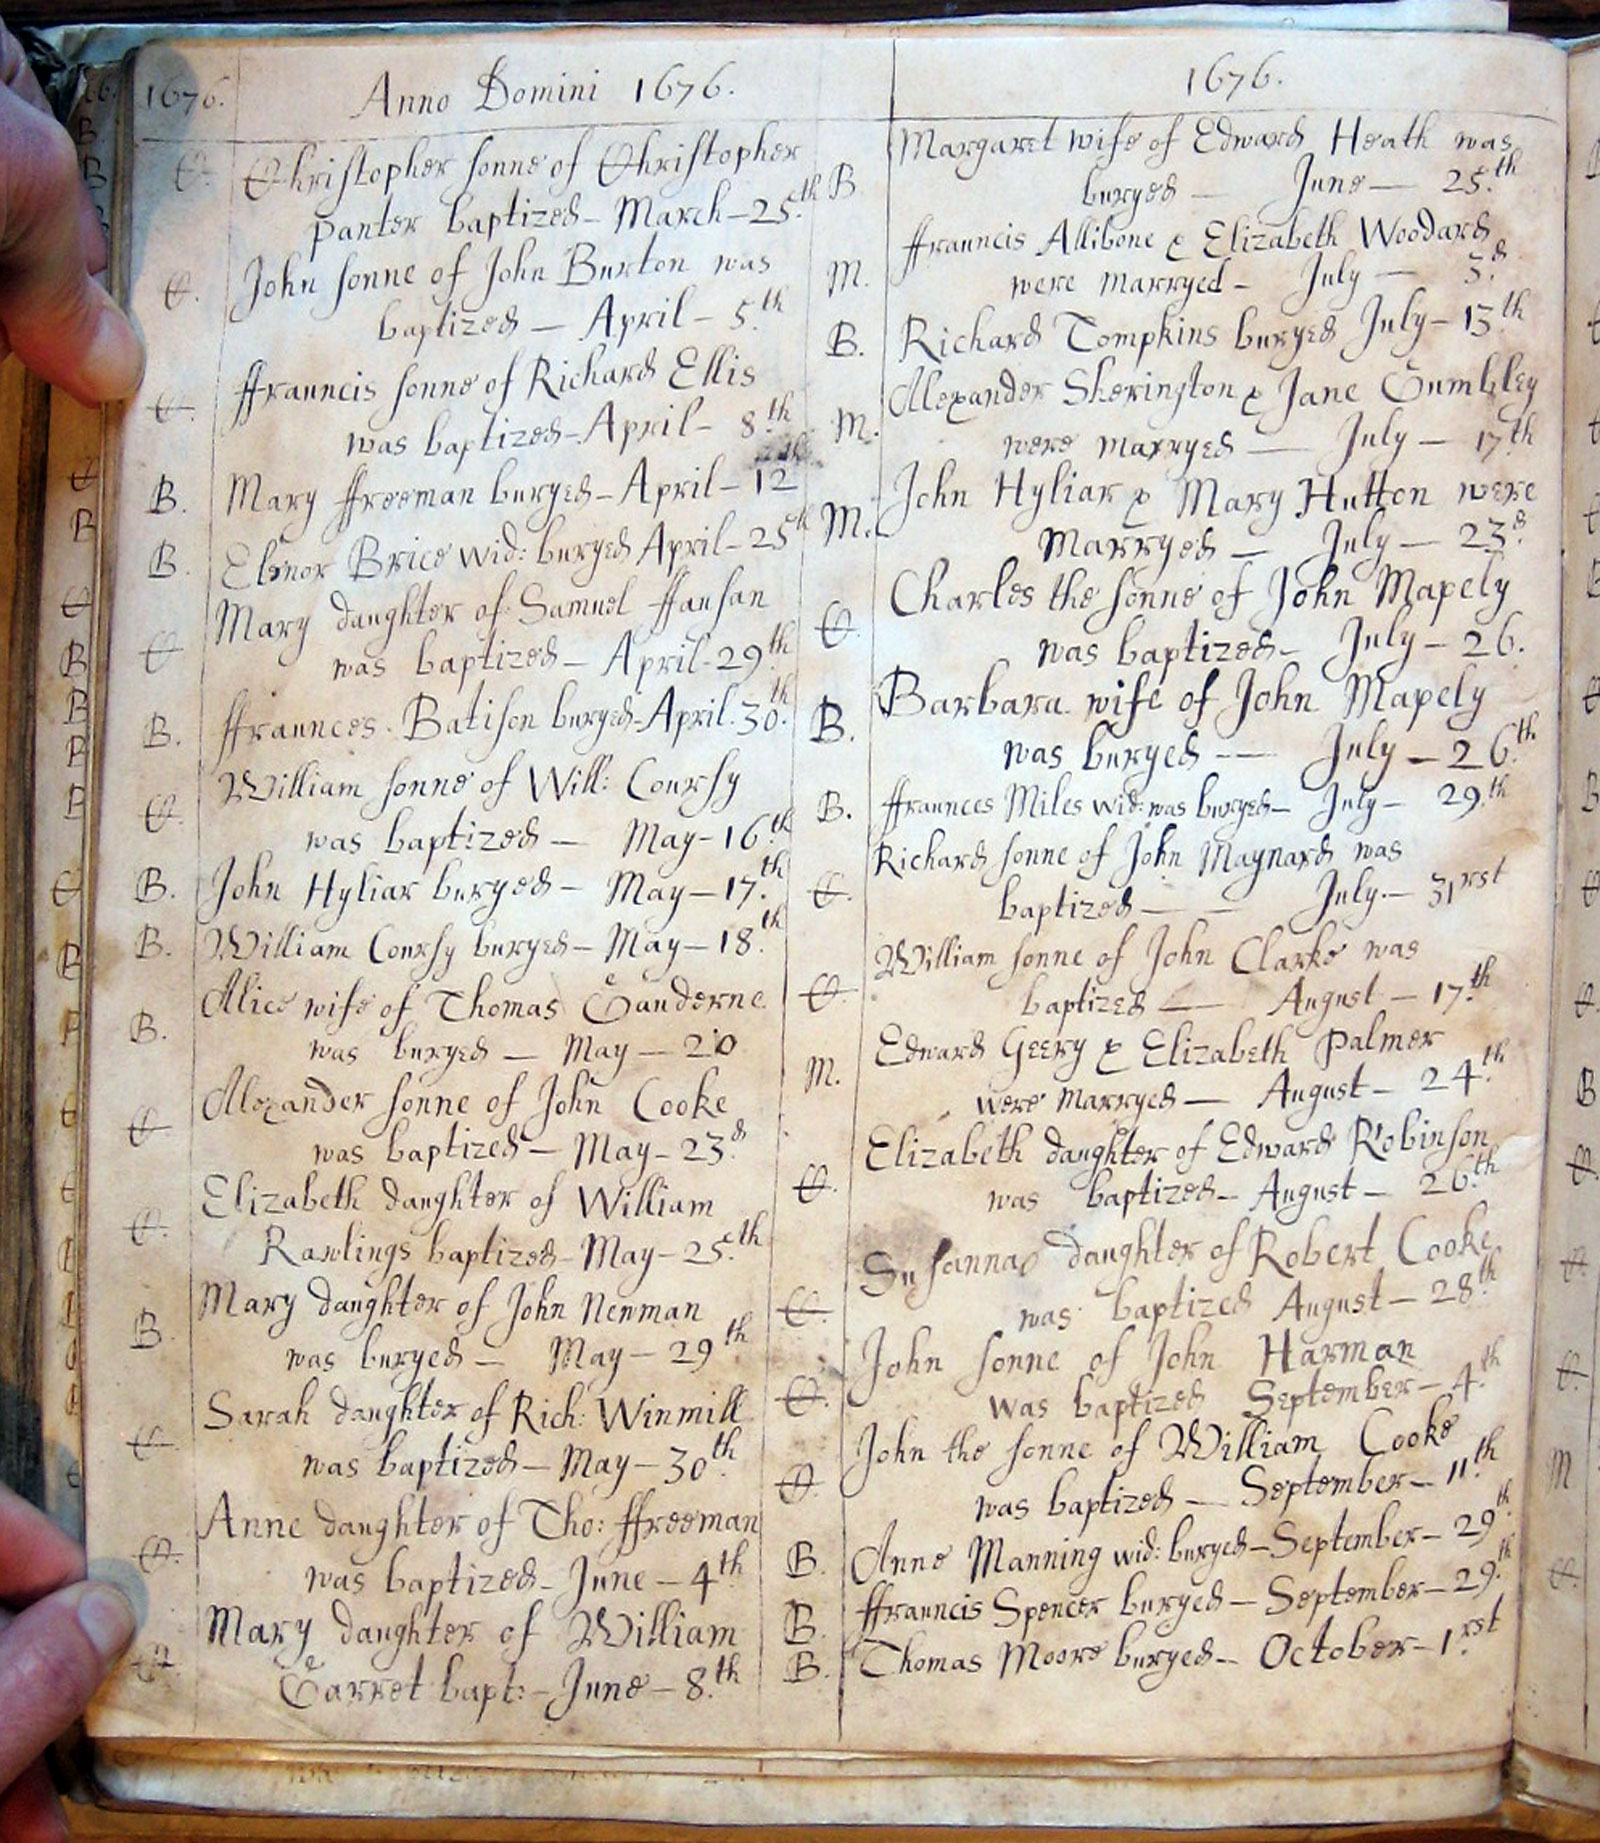 1676.
Anno Domini 1676.
C. Christopher sonne of Christopher
panter baptized - March - 25.th
C. John sonne of John Burton was
baptized - April - 5.th
C. ffrauncis sonne of Richard Ellis
was baptized - April - 8.th
B. Mary ffreeman buryed - April - 12th
B. Elenor Brice wid: buryed April - 25th
C. Mary daughter of Samuel ffansan
was baptized - April - 29th
B. ffraunces Batison buryed - April. 30.th
C. William sonne of Will: Coursy
was baptized - May - 16th
B. John Hyliar buryed - May - 17.th
B. William Coursy buryed - May - 18.th
B. Alice wife of Thomas Ganderne
was buryed - May - 20
C. Alexander sonne of John Cooke
was baptized - May - 23.d
C. Elizabeth daughter of William
Rawlings baptized - May - 25.th
B. Mary daughter of John Newman
was buryed - May - 29th
C. Sarah daughter of Rich: Winmill
was baptized - May - 30th
C. Anne daughter of Tho: ffreeman
was baptized - June - 4th
C. Mary daughter of William
Garret bapt: - June - 8.th
1676.
B Margaret wife of Edward Heath was
buryed - June - 25.th
M. ffrauncis Allibone & Elizabeth Woodard
were marryed - July - 3.d
B. Richard Tompkins buryed July - 15th
M. Alexander Sherington & Jane Cumbley
were marryed - July - 17th
M. John Hyliar & Mary Hutton were
Marryed - July - 23.d
C. Charles the sonne of John Mapely
was baptized - July - 26.
B. Barbara wife of John Mapely
was buryed - July - 26.th
B. ffraunces Miles wid: was buryed - July - 29.th
C. Richard sonne of John Maynard was
baptized - July - 31rst
C. William sonne of John Clarke was
baptized - August - 17.th
M. Edward Geery & Elizabeth Palmer
were marryed - August - 24.th
C. Elizabeth daughter of Edward Robinson
was baptized - August - 26.th
C. Susanna daughter of Robert Cooke
was baptized August - 28.th
C. John sonne of John Harman
was baptized September - 4.th
C. John the sonne of William Cooke
was baptized - September - 11.th
B. Anne Manning wid: buryed - September - 29.th
B. ffrauncis Spencer buryed - September - 29.th
B. Thomas Moore buryed - October - 1.rst